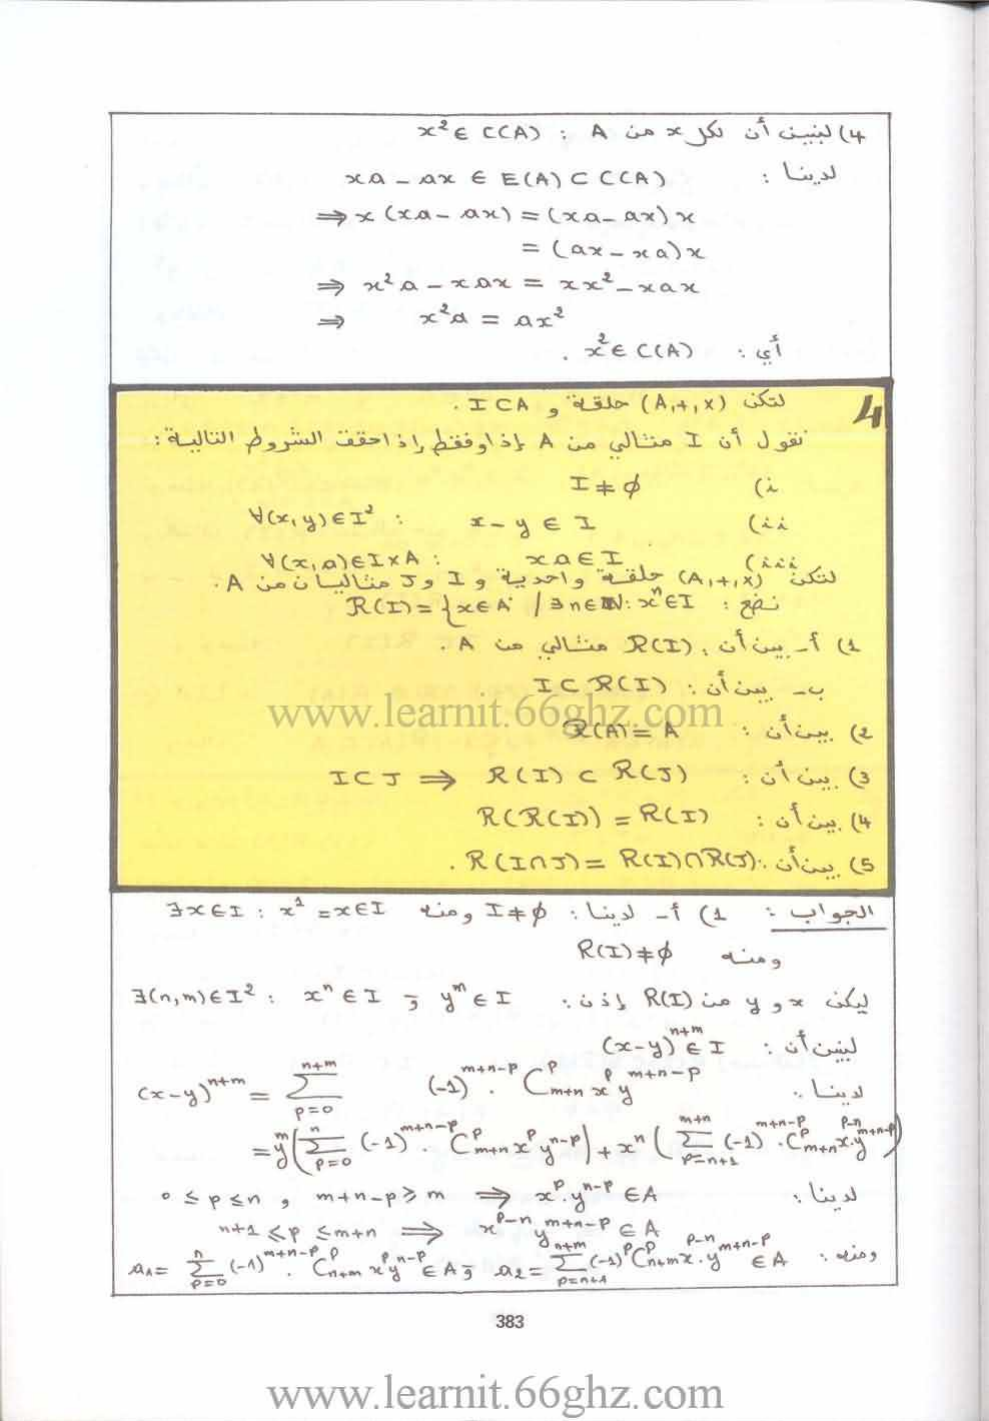 4) لنبين أن لكل x من A : x² ∈ C(A)
لدينا : xa - ax ∈ E(A) ⊂ C(A)
⇒ x(xa - ax) = (xa - ax)x
= (ax - xa)x
⇒ x²a - xax = xx² - xax
⇒ x²a = ax²
أي : x² ∈ C(A) .
4
لتكن (A,+,x) حلقة و I⊂A .
نقول أن I مثالي من A إذا وفقط إذا حققت الشروط التالية :
i) I ≠ ∅
ii) ∀(x,y)∈I² : x - y ∈ I
iii) ∀(x,a)∈I×A : xa ∈ I
لتكن (A,+,x) حلقة واحدية و I و J مثاليان من A .
نضع : R(I) = {x∈A / ∃n∈ℕ : xⁿ∈I
1) أ- بين أن : R(I) مثالي من A .
ب- بين أن : I ⊂ R(I)
www.learnit.66ghz.com
2) بين أن : R(A) = A
3) بين أن : I ⊂ J ⇒ R(I) ⊂ R(J)
4) بين أن : R(R(I)) = R(I)
5) بين أن : R(I∩J) = R(I)∩R(J) .
الجواب : 1) أ- لدينا : I ≠ ∅ ومنه ∃x∈I : x¹ = x∈I
ومنه R(I) ≠ ∅
ليكن x و y من R(I) إذن : ∃(n,m)∈I² : xⁿ ∈ I و yᵐ ∈ I
لنبين أن : (x-y)ⁿ⁺ᵐ ∈ I
لدينا : (x-y)^{n+m} = ∑_{p=0}^{n+m} (-1)^{m+n-p} . C_{m+n}^{p} x^{p} y^{m+n-p}
= y^{m}(∑_{p=0}^{n} (-1)^{m+n-p} . C_{m+n}^{p} x^{p} y^{n-p}) + x^{n}(∑_{p=n+1}^{m+n} (-1)^{m+n-p} . C_{m+n}^{p} x^{p-n} . y^{m+n-p})
لدينا : 0 ≤ p ≤ n , m+n-p ≥ m ⇒ x^{p} . y^{n-p} ∈ A
n+1 ≤ p ≤ m+n ⇒ x^{p-n} y^{m+n-p} ∈ A
ومنه : a₁ = ∑_{p=0}^{n} (-1)^{m+n-p} . C_{n+m}^{p} x^{p} y^{n-p} ∈ A و a₂ = ∑_{p=n+1}^{n+m} (-1)^{p} C_{n+m}^{p} x^{p-n} . y^{m+n-p} ∈ A
383
www.learnit.66ghz.com